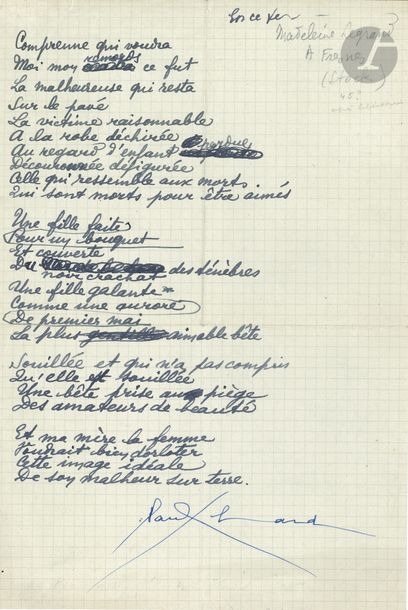 Comprenne qui voudra
Moi mon remords ce fut
La malheureuse qui resta
Sur le pavé
La victime raisonnable
A la robe déchirée
Au regard d'enfant perdue
Découronnée défigurée
Celle qui ressemble aux morts
Qui sont morts pour être aimés
Une fille faite
Pour un bouquet
Et couverte
Du noir crachat des ténèbres
Une fille galante
Comme une aurore
De premier mai
La plus aimable bête
Souillée et qui n'a pas compris
Qu'elle est souillée
Une bête prise au piège
Des amateurs de beauté
Et ma mère la femme
Voudrait bien dorloter
Cette image idéale
De son malheur sur terre.
Madeleine Legrand
A Fresnes